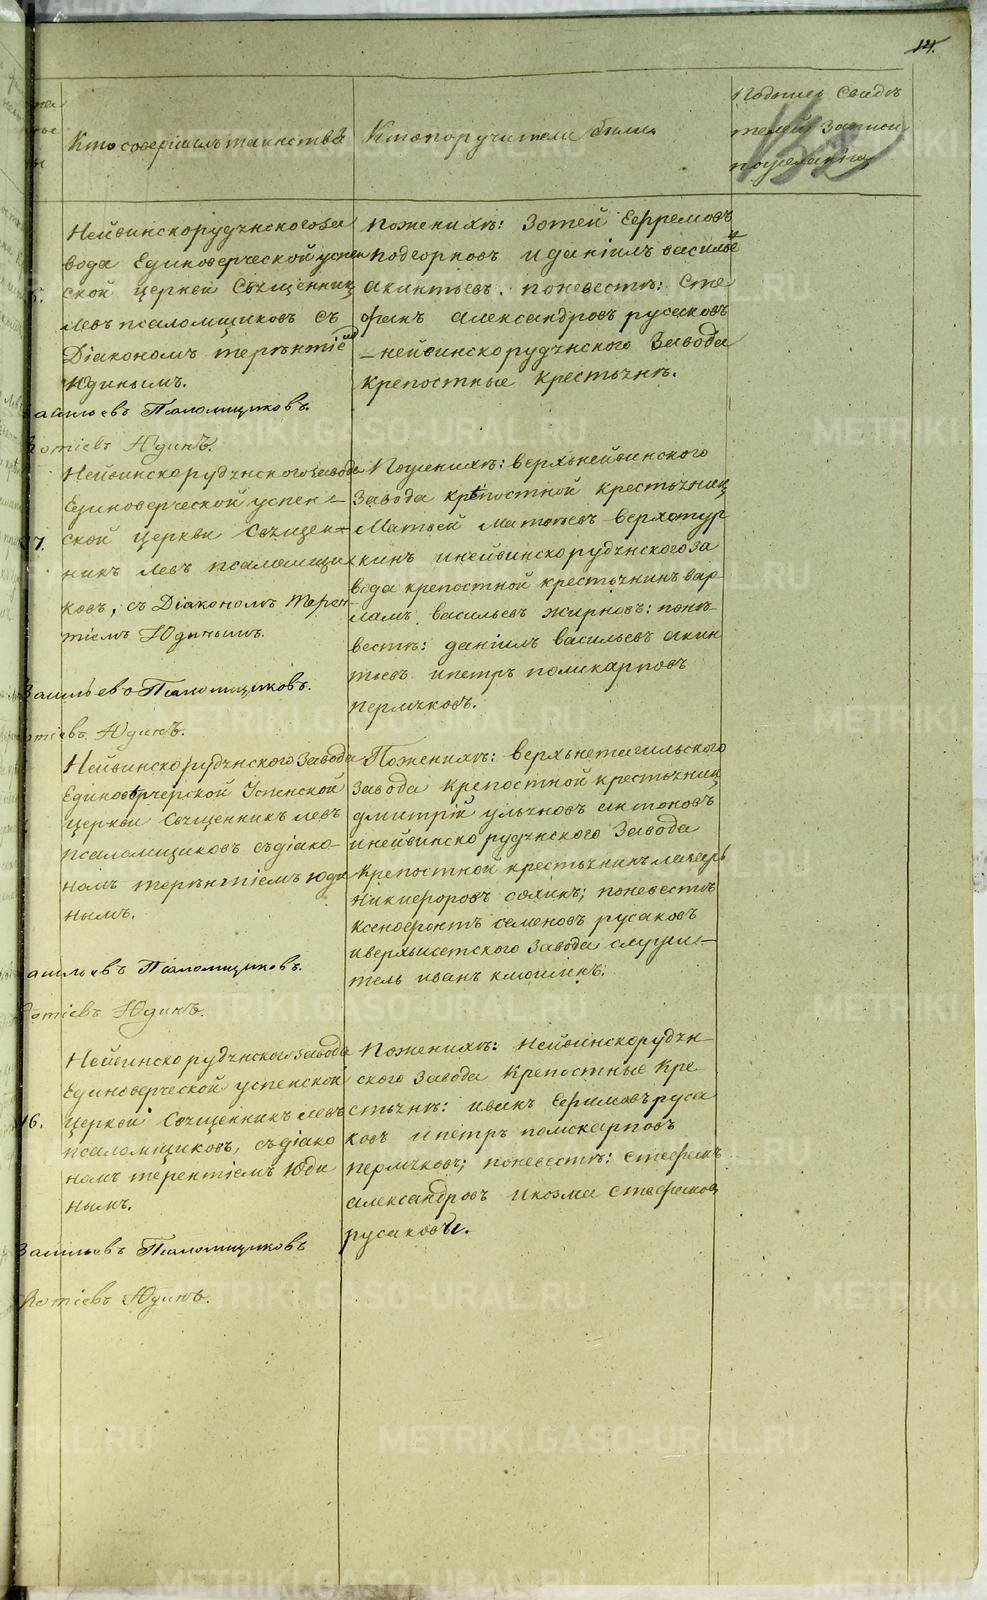 14.
Кто совершалъ таинство
Кто поручители были
Подпись Свидѣ
телей Записи
по желанію
Нейвинскорудянского за
вода Единоверческой успен
ской церкви Священник
Левъ псаломщиковъ съ
Діакономъ терентіе
Юдинымъ.
Псаломщиковъ.
Юдинъ.
по женихѣ: Зотей Ефремовъ
подгорновъ и даніилъ василье
акинтьевъ. по невестѣ: Сте
фанъ александровъ русаковъ
– нейвинскорудянского Завода
крепостные крестьяне.
Нейвинскорудянского завода
Единоверческой успен–
17.
ской церкви Священ–
никъ Левъ псаломщи
ковъ, съ Діакономъ терен–
тіемъ Юдинымъ.
Васильевъ Псаломщиковъ.
Юдинъ.
По женихѣ: верхьнейвинского
Завода крѣпостной крестьянин
Матвей Матвеевъ верхотур
кинъ и нейвинскорудянского за
вода крепостной крестьянинъ вар–
лamъ васильевъ жирновъ: по не
вестѣ: даніилъ васильевъ акин
тьевъ и петръ поликарповъ
пермяковъ.
Нейвинскорудянского Завода
Единовѣрческой Успенской
церкви Священникъ левъ
псаломщиковъ съ діако–
номъ терентіемъ юди
нымъ.
Псаломщиковъ.
Юдинъ.
По женихѣ: верхьнетагильского
Завода крепостной крестьянин
дмитрій ульяновъ антоновъ
и нейвинско рудянского Завода
крепостной крестьянинъ макаръ
никифоровъ; по невестѣ
ксенофонтъ семеновъ русаковъ
и верхьисетского Завода служи–
тель иванъ
Нейвинско рудянского завода
Единоверческой успенской
16.
церкви Священникъ левъ
псаломщиковъ, съ діако
номъ терентіемъ Юди
нымъ.
Васильевъ Псаломщиковъ
Юдинъ.
По женихѣ: Нейвинскорудян–
ского Завода Крепостные Кре–
стьяне: иванъ Ефимовъ руса
ковъ и петръ поликарповъ
пермяковъ; по невестѣ: стефанъ
александровъ и козма стефанов
русаковы.
METRIKI.GASO-URAL.RU